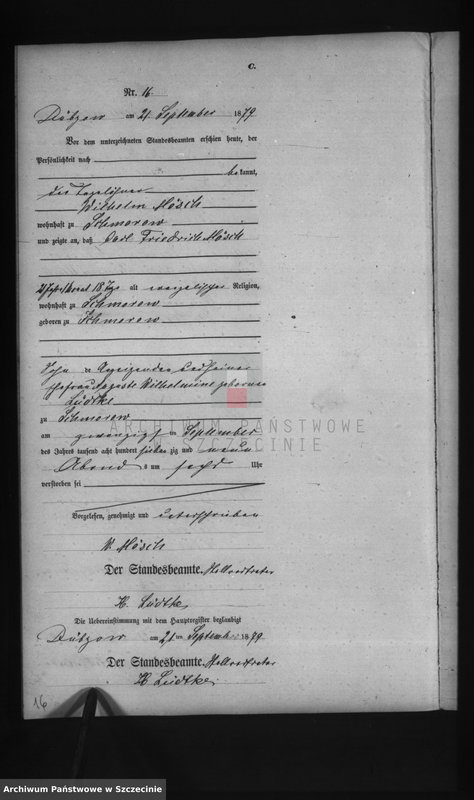 C.
Nr. 16
Dübzow am 21. September 1879
Vor dem unterzeichneten Standesbeamten erschien heute, der
Persönlichkeit nach
bekannt,
der Tagelöhner
Wilhelm Mösch
wohnhaft zu Schmorow
und zeigte an, daß Carl Friedrich Mösch
2 Jahr 18 Tage alt evangelischer Religion,
wohnhaft zu Schmorow
geboren zu Schmorow
Sohn des Anzeigenden und seiner
Ehefrau Wilhelmine geborene
Lüdtke
zu Schmorow
am zwanzigst ten September
des Jahres tausend acht hundert sieben zig und neun
Abends um sechs Uhr
verstorben sei
Vorgelesen, genehmigt und unterschrieben
W. Mösch
Der Standesbeamte. Stellvertreter
H. Lüdtke
Die Uebereinstimmung mit dem Hauptregister beglaubigt
Dübzow am 21ten September 1879.
Der Standesbeamte. Stellvertreter
H. Lüdtke.
16
ARCHIWUM PAŃSTWOWE
W SZCZECINIE
Archiwum Państwowe w Szczecinie